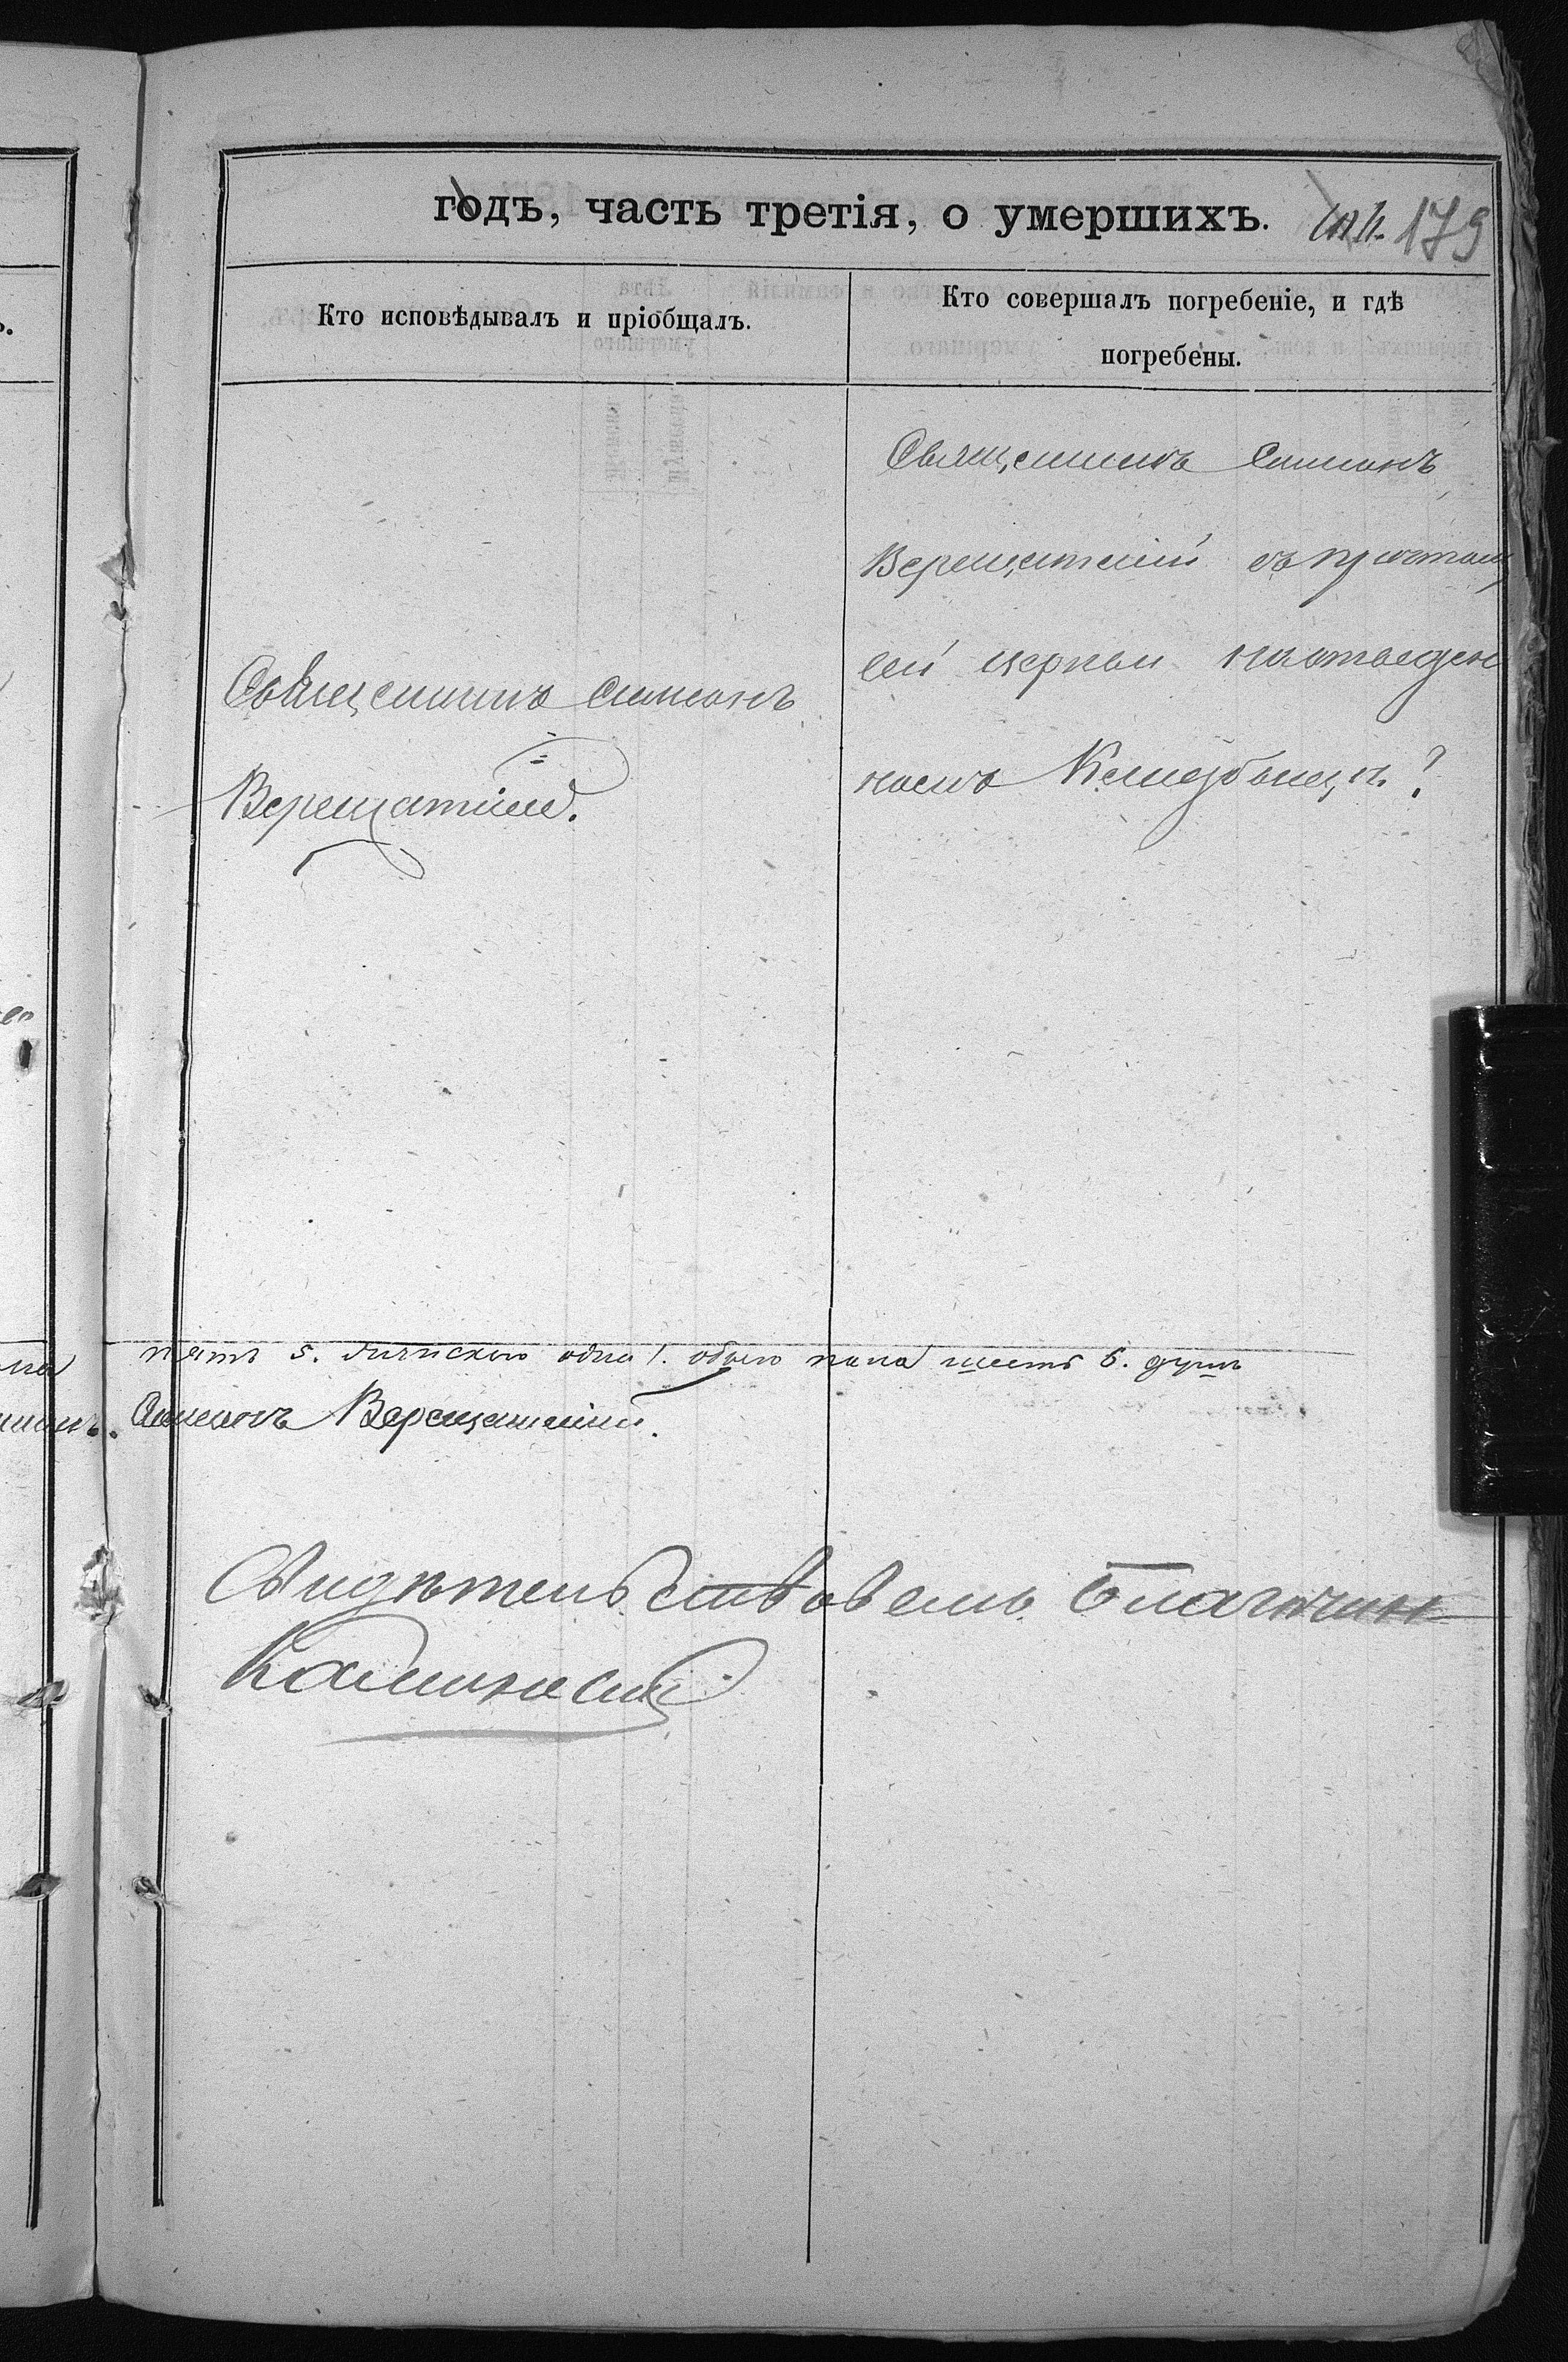 годъ, часть третія, о умершихъ. 179
Кто исповѣдывалъ и пріобщалъ.
Кто совершалъ погребеніе, и гдѣ
погребены.
Священникъ Симеонъ
Верещатскій.
Священникъ Симеонъ
Верещатскій съ причтомъ
сей церкви на отведен
номъ Кладбищѣ.
пять 5. женскаго одна 1. обоего пола шесть 6. душъ
Симеонъ Верещатскій.
Свидѣтельствовалъ Благочин